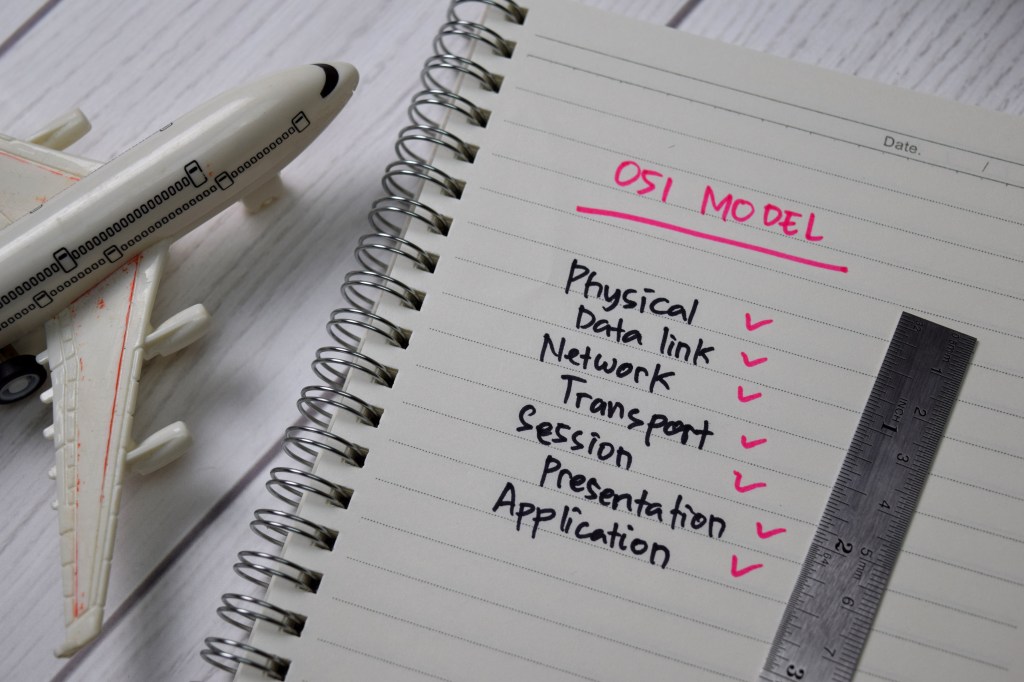 Date. /
OSI MODEL
Physical ✓
Data link ✓
Network ✓
Transport ✓
Session ✓
Presentation ✓
Application ✓
1
2
3
4
5 mm
6
7
INCH 1
2
64
3